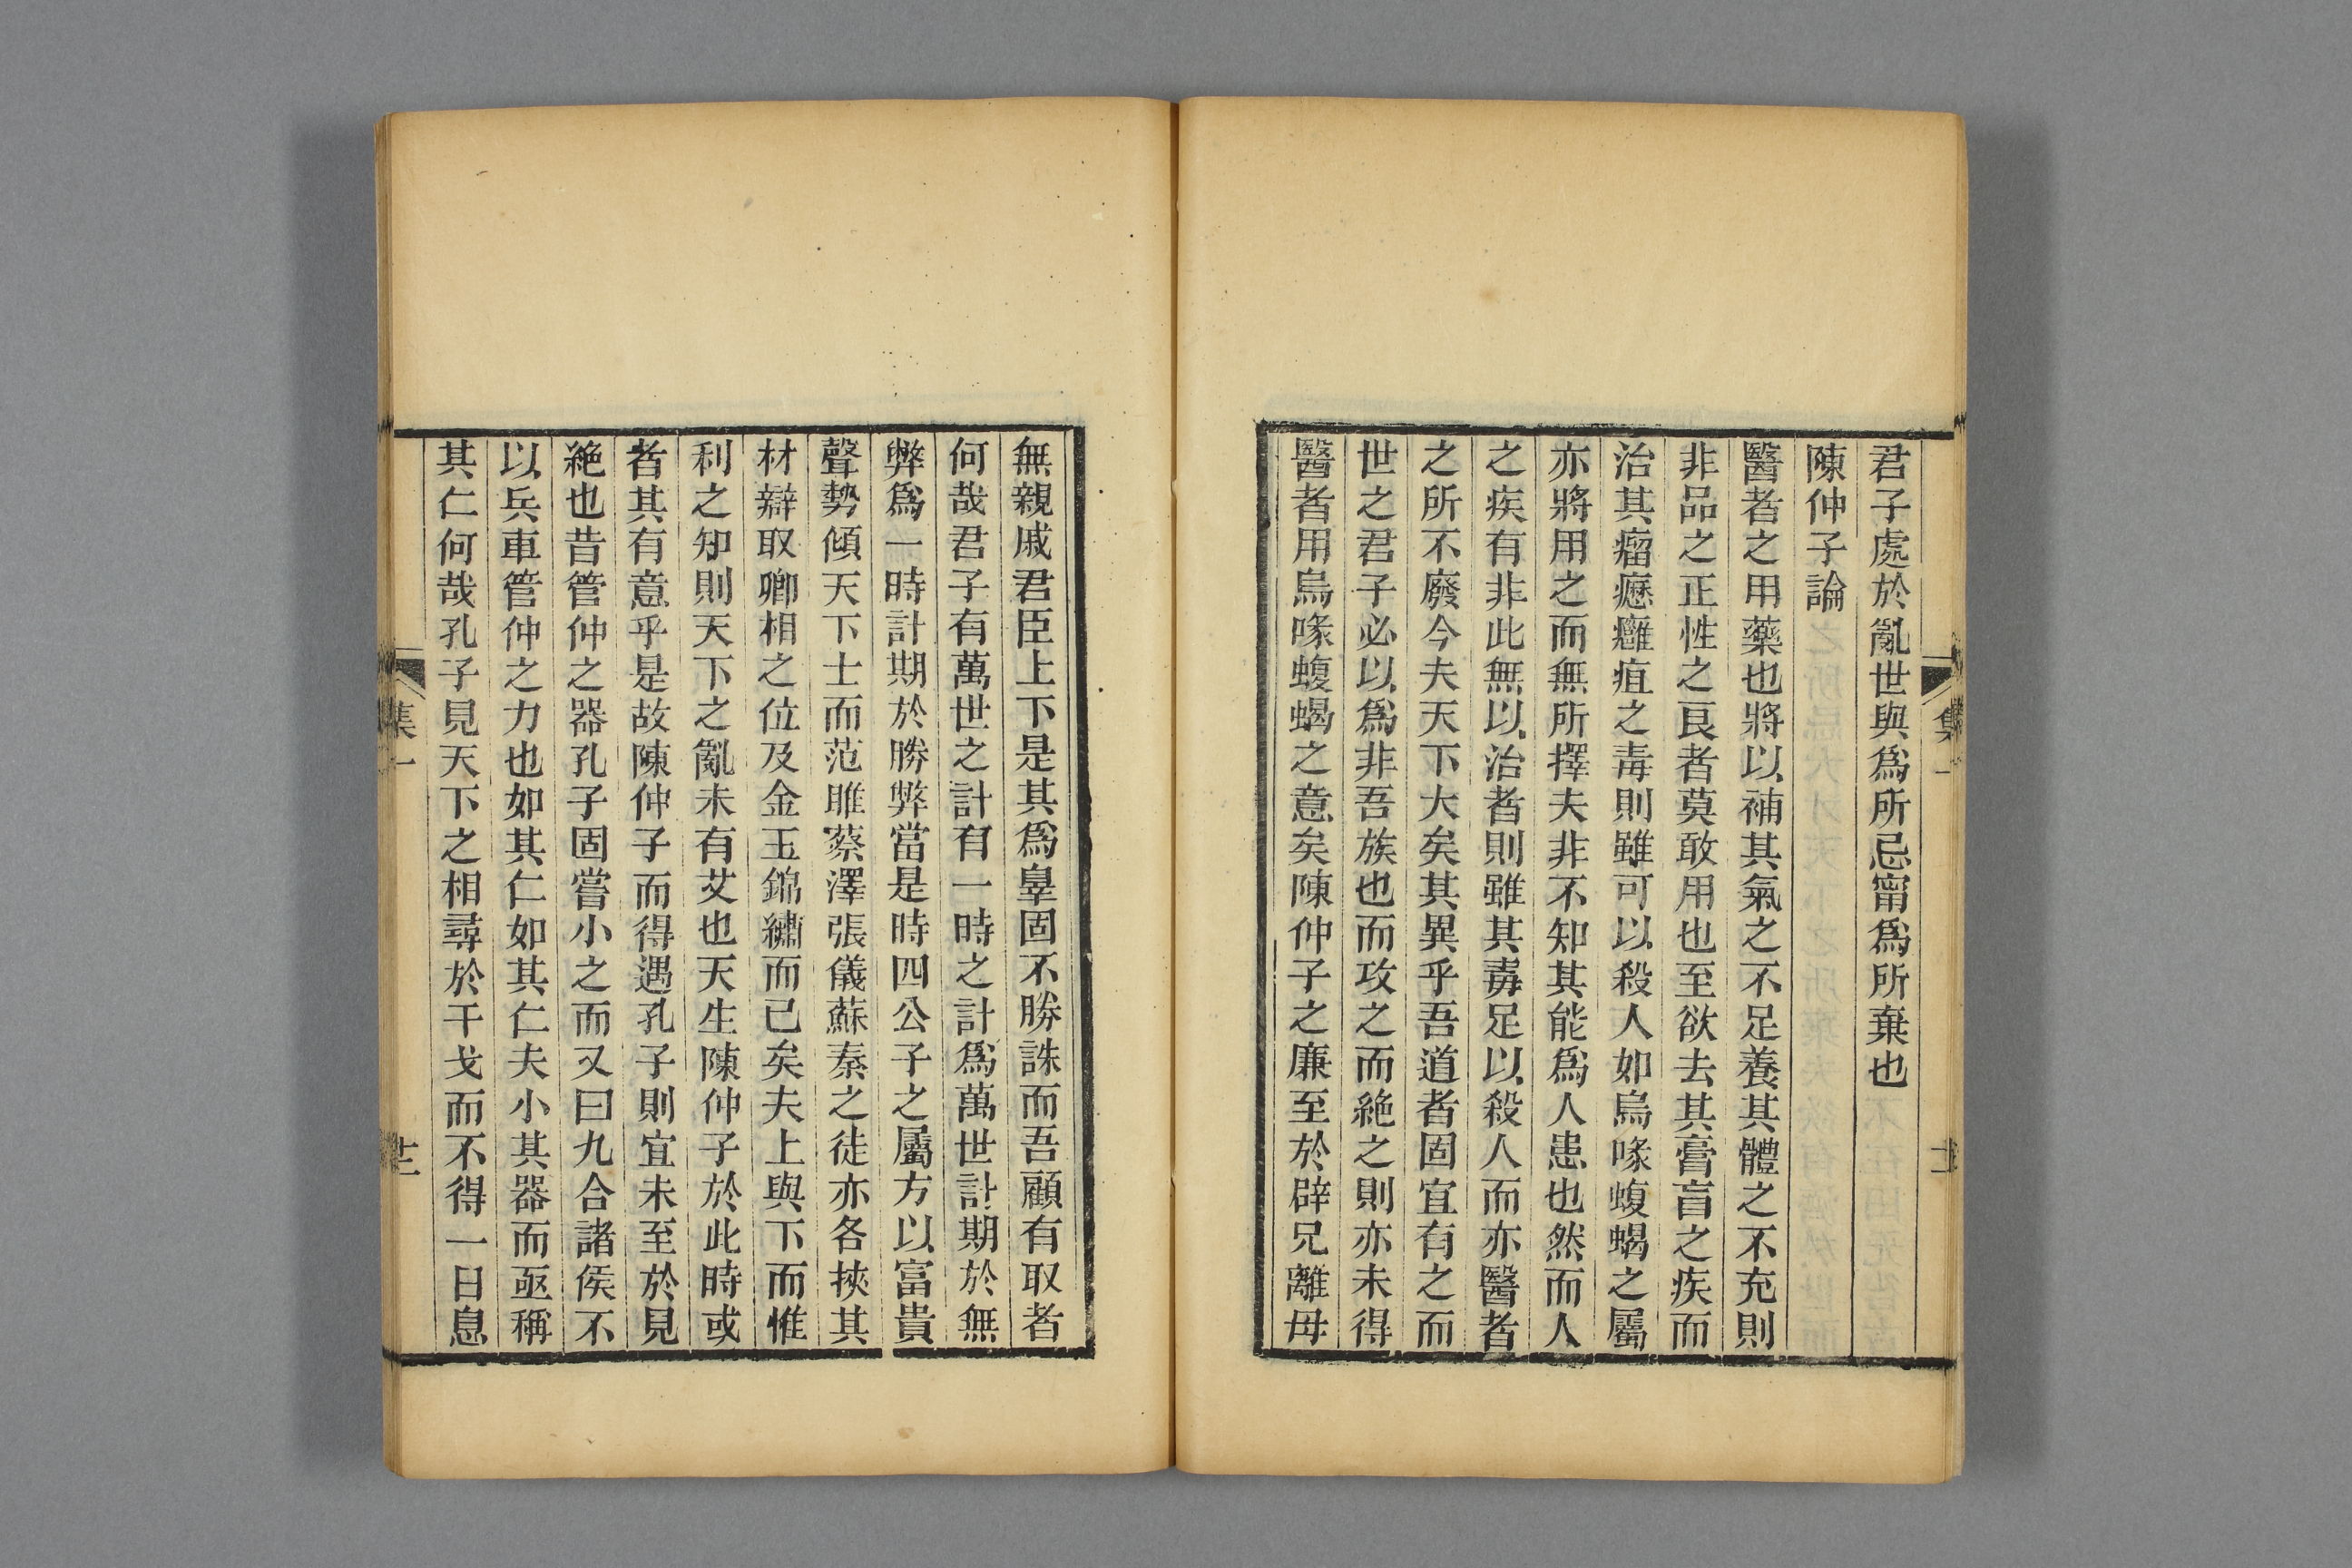 君子處於亂世與爲所忌甯爲所棄也
陳仲子論
醫者之用藥也將以補其氣之不足養其體之不充則
非品之正性之良者莫敢用也至欲去其膏盲之疾而
治其瘤癧癰疽之毒則雖可以殺人如烏喙蝮蝎之屬
亦將用之而無所擇夫非不知其能爲人患也然而人
之疾有非此無以治者則雖其毒足以殺人而亦醫者
之所不廢今夫天下大矣其異乎吾道者固宜有之而
世之君子必以爲非吾族也而攻之而絶之則亦未得
醫者用烏喙蝮蝎之意矣陳仲子之廉至於辟兄離母
無親戚君臣上下是其爲辠固不勝誅而吾顧有取者
何哉君子有萬世之計有一時之計爲萬世計期於無
弊爲一時計期於勝弊當是時四公子之屬方以富貴
聲勢傾天下士而范雎蔡澤張儀蘇秦之徒亦各挾其
材辯取卿相之位及金玉錦繡而已矣夫上與下而惟
利之知則天下之亂未有艾也天生陳仲子於此時或
者其有意乎是故陳仲子而得遇孔子則宜未至於見
絶也昔管仲之器孔子固嘗小之而又曰九合諸侯不
以兵車管仲之力也如其仁如其仁夫小其器而亟稱
其仁何哉孔子見天下之相尋於干戈而不得一日息
集一